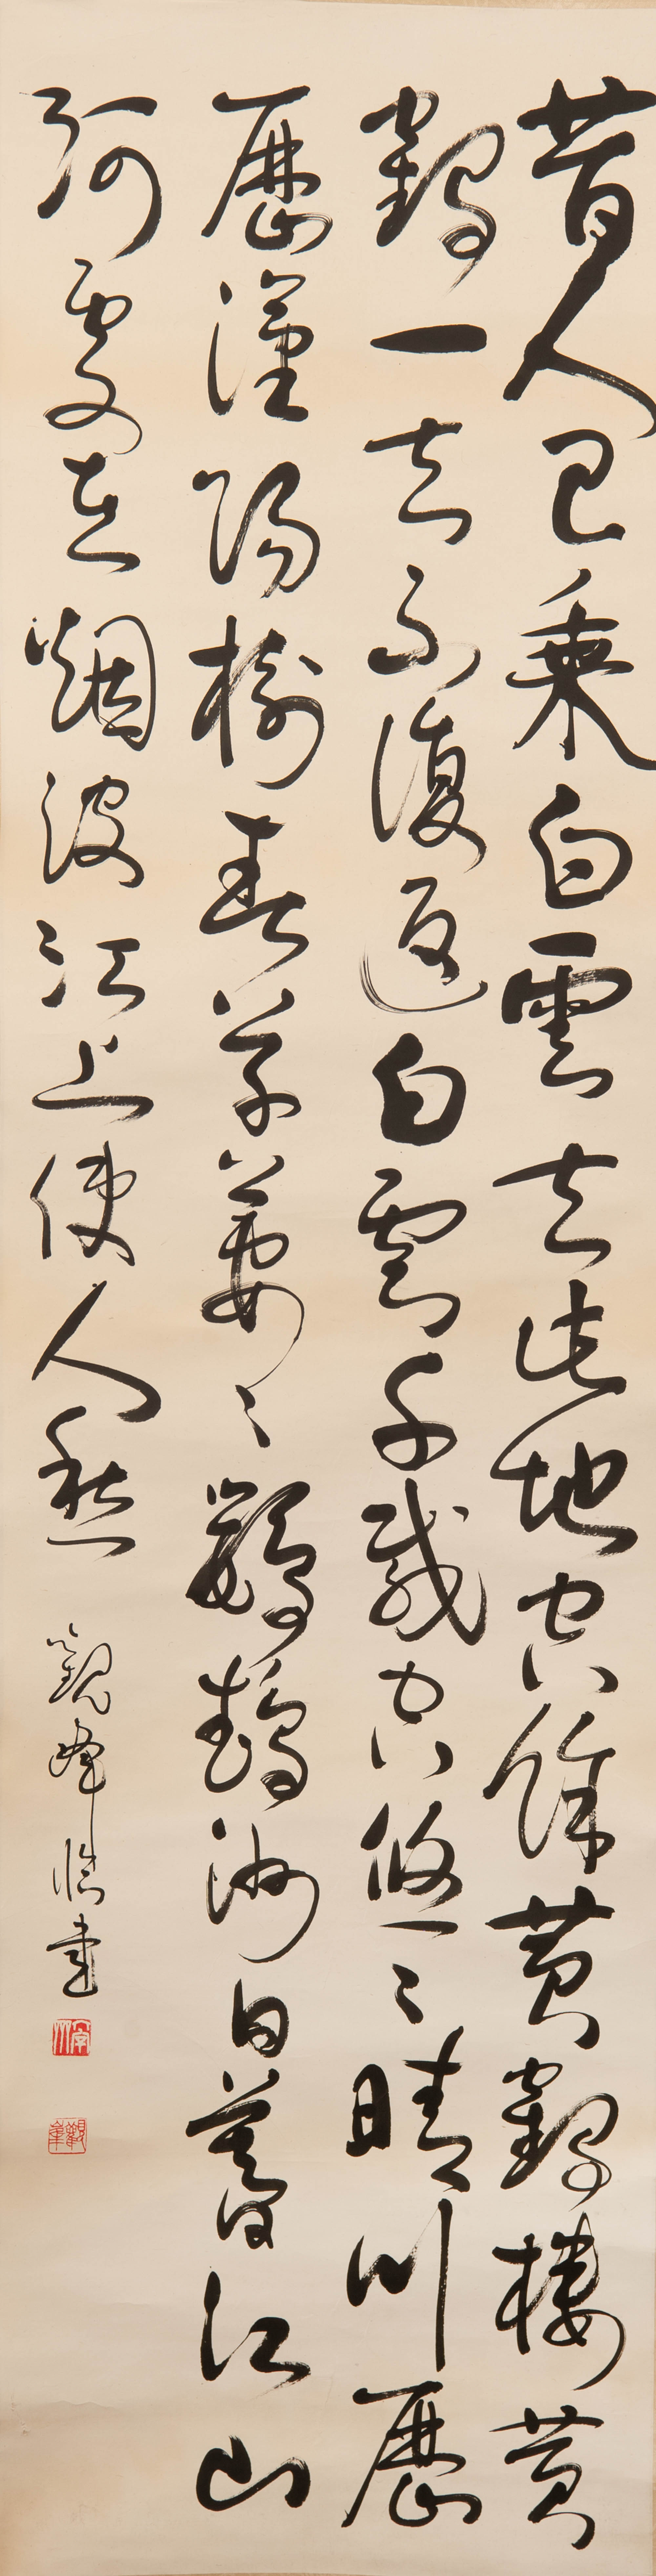 昔人已乘白雲去此地空餘黃鶴樓黃
鶴一去不復返白雲千載空悠々晴川歷
歷漢陽樹春草萋々鸚鵡洲日暮江山
何處在烟波江上使人愁
觀峰臨書